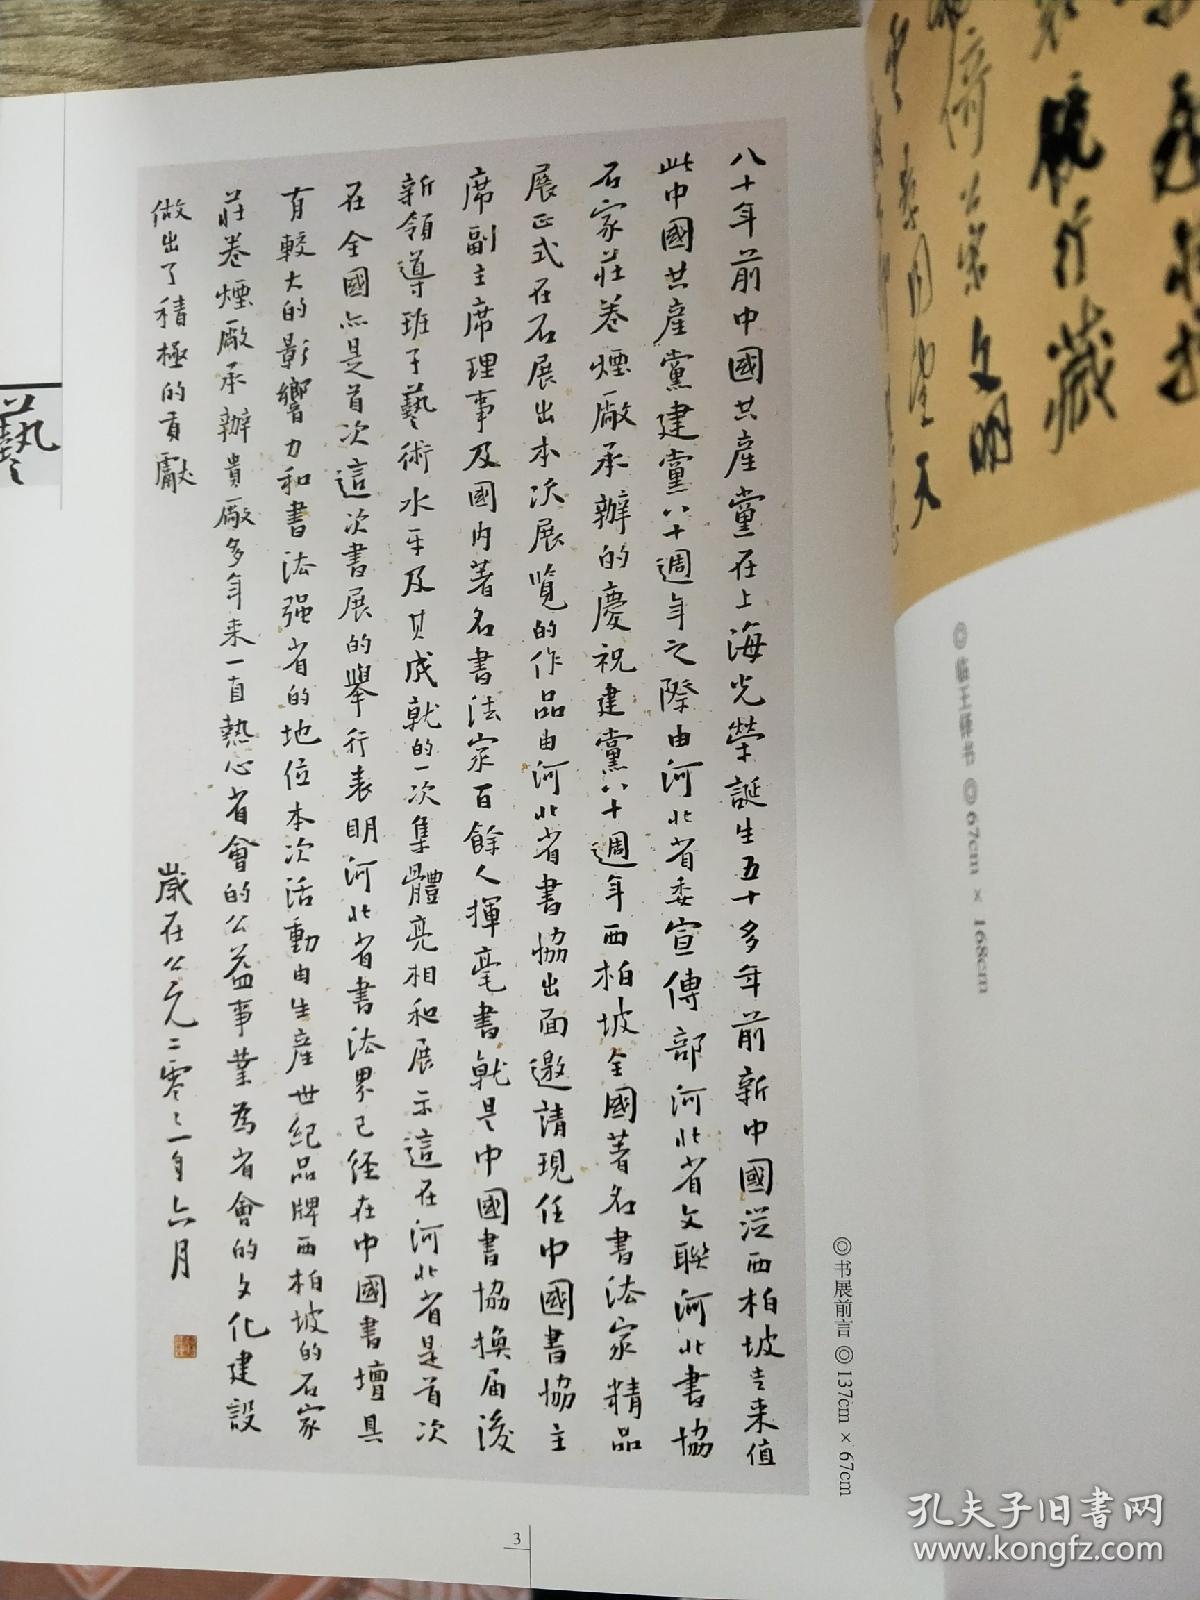 八十年前中國共產黨在上海光榮誕生五十多年前新中國從西柏坡走來值
此中國共產黨建黨八十週年之際由河北省委宣傳部河北省文聯河北書協
石家莊卷煙廠承辦的慶祝建黨八十週年西柏坡全國著名書法家精品
展正式在石展出本次展覽的作品由河北省書協出面邀請現任中國書協主
席副主席理事及國内著名書法家百餘人揮毫書就是中國書協換届後
新領導班子藝術水平及其成就的一次集體亮相和展示這在河北省是首次
在全國亦是首次這次書展的舉行表明河北省書法界已經在中國書壇具
有較大的影響力和書法强省的地位本次活動由生産世紀品牌西柏坡的石家
莊卷煙廠承辦貴廠多年来一直熱心省會的公益事業為省會的文化建設
做出了積極的貢獻
歲在公元二零零一年六月
◎书展前言 ◎137cm × 67cm
3
藝
◎临王铎书 ◎67cm × 168cm
文明
行藏
天
孔夫子旧书网
www.kongfz.com